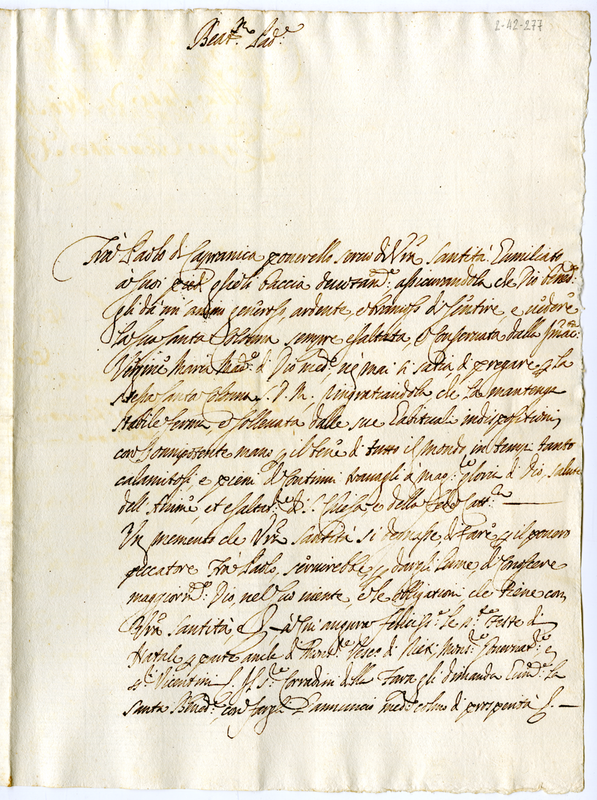 2-42-277
Beat.mo Pad.e
Fra Paolo di Capranica poverello servo di V.ra Santità humiliato
a suoi piedi glieli baccia devotam.: assicurandola che Dio bened.
gli dà un' animo generoso, ardente, di sentire, e vedere
la sua santa Colonna sempre esaltata, e conservata dalla Imac.
Vergine Maria Mad.e di Dio med. nè mai si satia di pregare p la
stessa santa Colonna, ringratiandola che la mantenga
stabile ferma e sollevata dalle sue habituali indispositioni
con l'onnipotente mano p il bene di tutto il mondo in tempi tanto
calamitosi, e pieni di continui travagli a mag.re gloria di Dio, salute
dell'Anime, et esaltat.ne di S. Chiesa e della Fede Catt.ca
Un memento che V.ra Santità si degnasse di fare p il povero
peccatore Fra Paolo, servirebbe p dargli lume, di conoscere
maggiorm. Dio, nel suo niente, e le obligationi che tiene con
V.ra Santità, a cui auguro felicis.e le S.te Feste di
Natale, p parte anche di Mons.re Vesc.o di Mons.re Governat.e
Corradini della Fara gli dimanda hum.e la
santa Bened.ne con l'annuncio med. colmo di prosperità